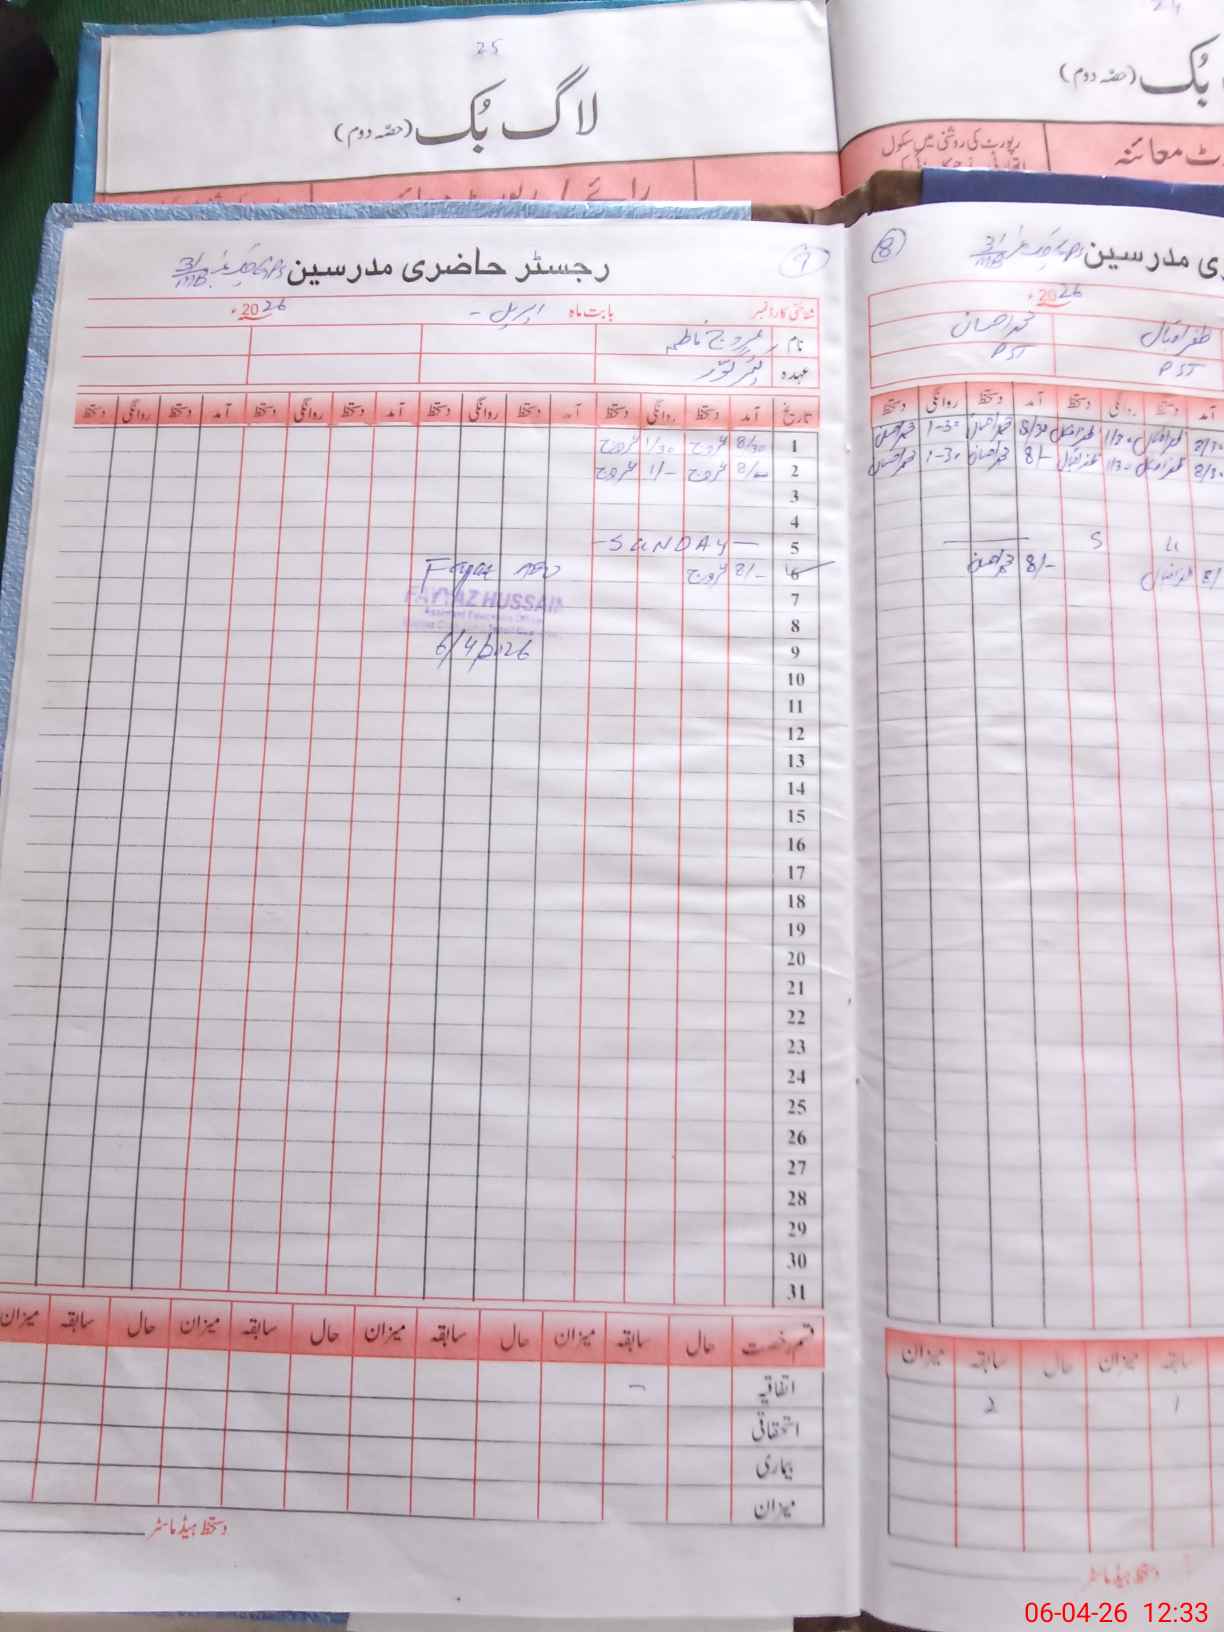 25
لاگ بُک (حصّہ دوم)
بُک (حصّہ دوم)
رپورٹ کی روشنی میں سکول
معائنہ
7
رجسٹر حاضری مدرسین GPS 31/MB
شناختی کارڈ نمبر بابت ماہ اپریل 2026ء
نام عروج فاطمہ
عہدہ
تاریخ آمد دستخط روانگی دستخط آمد دستخط روانگی دستخط آمد دستخط روانگی دستخط آمد دستخط روانگی دستخط
1 8/30 عروج 1/30 عروج
2 8/00 عروج 1/- عروج
3
4
5 -SUNDAY-
6 8/- عروج
FAYYAZ HUSSAIN
Assistant Education Officer
7
8
9
6/4/2026
10
11
12
13
14
15
16
17
18
19
20
21
22
23
24
25
26
27
28
29
30
31
قسم رخصت حال سابقہ میزان حال سابقہ میزان حال سابقہ میزان حال سابقہ میزان
اتفاقیہ -
استحقاقی
بیماری
میزان
دستخط ہیڈ ماسٹر
8
مدرسین GPS 31/MB
2026ء
ظفر اقبال محمد احسان
PST PST
آمد دستخط روانگی دستخط آمد دستخط روانگی دستخط
8/30 ظفر اقبال 1/30 ظفر اقبال 8/30 محمد احسان 1-30 محمد احسان
8/30 ظفر اقبال 1/30 ظفر اقبال 8/- محمد احسان 1-30 محمد احسان
S U
8/ ظفر اقبال 8/- محمد احسان
سابقہ میزان حال سابقہ میزان
1 2
دستخط ہیڈ ماسٹر
06-04-26 12:33